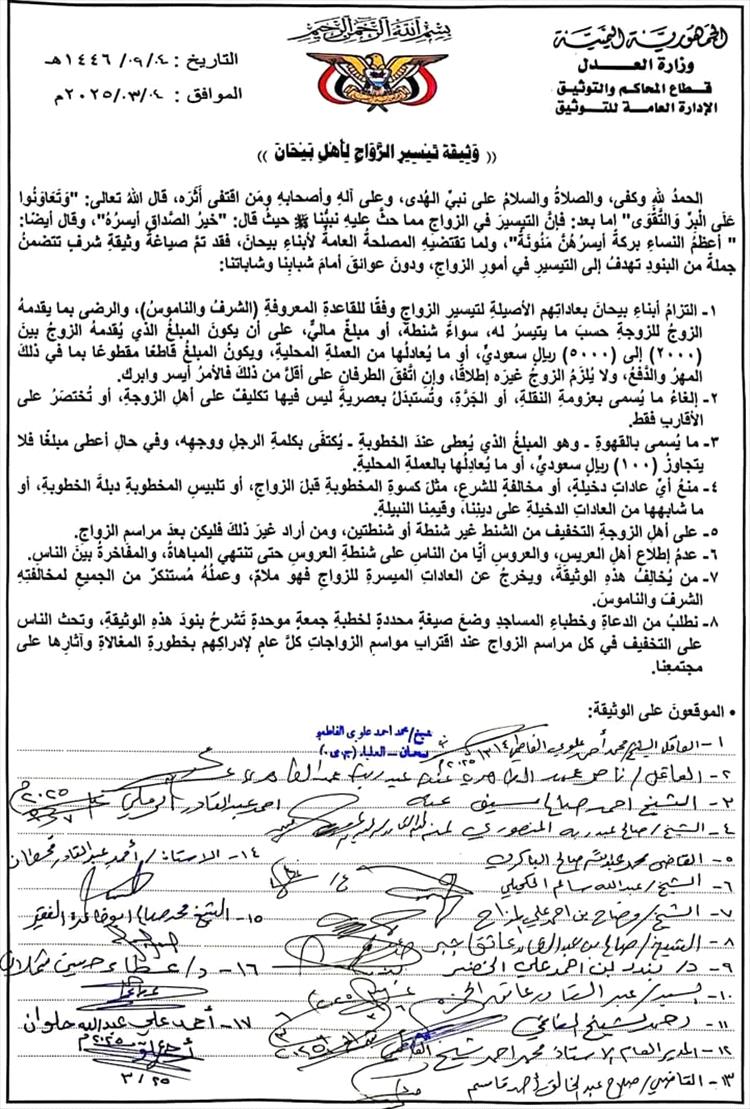 الجمهورية اليمنية
وزارة العدل
قطاع المحاكم والتوثيق
الإدارة العامة للتوثيق
بسم الله الرحمن الرحيم
التاريخ : ١٤٤٦/٠٩/٠٤هـ
الموافق : ٢٠٢٥/٠٣/٠٤م
(( وَثِيقة تَيسِير الزَّوَاجِ لِأهْلِ بَيْحَانَ ))
الحمدُ للهِ وكفى، والصلاةُ والسلامُ على نبيِّ الهُدى، وعلى آلهِ وأصحابهِ ومَن اقتفى أَثَرَه، قال اللهُ تعالى: "وَتَعَاوَنُوا
عَلَى الْبِرِّ وَالتَّقْوَى" اما بعد: فإنَّ التيسيرَ في الزواجِ مما حثَّ عليهِ نبيُّنا ﷺ حيثُ قال: "خيرُ الصَّداقِ أيسرُهُ"، وقال أيضًا:
" أعظمُ النساءِ بركةً أيسرُهُنَّ مَئُونَةً"، ولما تقتضيهِ المصلحةُ العامةُ لأبناءِ بيحانَ، فقد تمَّ صياغةُ وثيقةِ شرفٍ تتضمنُ
جملةً من البنودِ تهدفُ إلى التيسيرِ في أمورِ الزواجِ، ودونَ عوائقَ أمامَ شبابِنا وشاباتِنا:
١- التزامُ أبناءِ بيحانَ بعاداتِهم الأصيلةِ لتيسيرِ الزواجِ وفقًا للقاعدةِ المعروفةِ (الشرفُ والناموس)، والرضى بما يقدمهُ
الزوجُ للزوجةِ حسبَ ما يتيسرُ له، سواءً شنطةً، أو مبلغٌ ماليٌّ، على أن يكونَ المبلغُ الذي يُقدمهُ الزوجُ بينَ
(٢٠٠٠) إلى (٥٠٠٠) ريالٍ سعوديٍّ، أو ما يُعادلُها من العملةِ المحليةِ، ويكونُ المبلغُ قاطعًا مقطوعًا بما في ذلكَ
المهرُ والدَّفعُ، ولا يُلزَمُ الزوجُ غيرَه إطلاقًا، وإن اتَّفقَ الطرفانِ على أقلَّ من ذلكَ فالأمرُ أيسر وابرك.
٢- إلغاءُ ما يُسمى بعزومةِ النقلةِ، أو الجَرَّةِ، وتُستبدَلُ بعصريةٍ ليس فيها تكليفٌ على أهلِ الزوجةِ، أو تُختصَرُ على
الأقاربِ فقط.
٣- ما يُسمى بالقهوةِ - وهو المبلغُ الذي يُعطى عندَ الخطوبةِ - يُكتفَى بكلمةِ الرجلِ ووجهِه، وفي حالِ أعطى مبلغًا فلا
يتجاوزُ (١٠٠) ريالٍ سعوديٍّ، أو ما يُعادِلُها بالعملةِ المحليةِ.
٤- منعُ أيِّ عاداتٍ دخيلةٍ، أو مخالفةٍ للشرعِ، مثلَ كسوةِ المخطوبةِ قبلَ الزواجِ، أو تلبيسِ المخطوبةِ دبلةَ الخطوبةِ، أو
ما شابهها من العاداتِ الدخيلةِ على دينِنا، وقيمِنا النبيلةِ.
٥- على أهلِ الزوجةِ التخفيفُ من الشنطِ غيرِ شنطةٍ أو شنطتينِ، ومن أرادَ غيرَ ذلكَ فليكن بعدَ مراسمِ الزواجِ.
٦- عدمُ إطلاعِ أهلِ العريسِ، والعروسِ أيًّا من الناسِ على شنطةِ العروسِ حتى تنتهي المباهاةُ، والمفاخرةُ بينَ الناسِ.
٧- من يُخالِفُ هذهِ الوثيقةَ، ويخرجُ عن العاداتِ الميسرةِ للزواجِ فهو ملامٌ، وعملُهُ مُستنكَرٌ من الجميعِ لمخالفتِهِ
الشرفَ والناموسَ.
٨- نطلبُ من الدعاةِ وخطباءِ المساجدِ وضعَ صيغةٍ محددةٍ لخطبةِ جمعةٍ موحدةٍ تَشرحُ بنودَ هذهِ الوثيقةِ، وتحث الناس
على التخفيفِ في كل مراسم الزواج عند اقترابِ مواسمِ الزواجاتِ كلَّ عامٍ لإدراكِهم بخطورةِ المغالاةِ وآثارِها على
مجتمعِنا.
• الموقعونَ على الوثيقةِ:
شيخ/ محمد احمد علوي الفاطمي
بيحان - العلياء
١- العاقل الشيخ محمد أحمد علوي الفاطمي
٢- العاقل/ ناصر
٣- الشيخ احمد صالح سيف
احمد عبدالقادر
٤- الشيخ/ صالح عبدربه المنصوري
٥- القاضي محمد عبدالله صالح الباكري
١٤- الاستاذ/ أحمد عبدالقادر قحطان
٦- الشيخ/ عبدالله سالم الكحيلي
٧- الشيخ/ وضاح بن احمد علي
١٥- الشيخ محمد صالح الفقير
٨- الشيخ/ صالح بن
٩- د/ بندر بن احمد علي الخضير
١٦- د/ عطاء حسين شملان
١٠-
١١- الشيخ
١٧- أحمد علي عبدالله حلوان
١٢- المدير العام الاستاذ محمد احمد شيخ الفاطمي
١٣- القاضي/ صلاح عبدالخالق أحمد قاسم